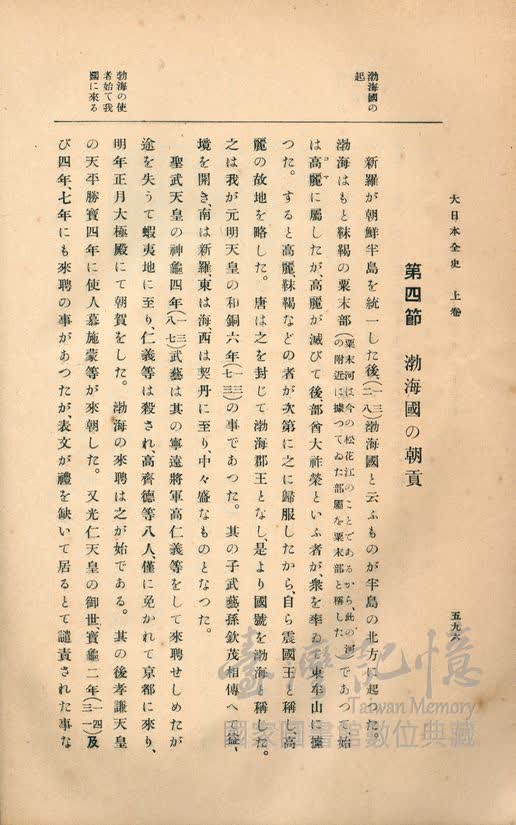 大日本全史　上卷
五九六
渤海國の
起
渤海の使
者始て我
國に來る
第四節　渤海國の朝貢
新羅が朝鮮半島を統一した後(一三二八)渤海國と云ふものが半島の北方に起つた。
渤海はもと靺鞨の粟末部(粟末河は今の松花江のことであるから、此の河の附近に據つてゐた部屬を粟末部と稱した)であつて始
は高麗に屬したが、高麗が滅びて後、部酋大祚榮といふ者が、衆を率ゐ、東牟山に據
つた。すると高麗、靺鞨などの者が次第に之に歸服したから、自ら震國王と稱し、高
麗の故地を略した。唐は之を封じて渤海郡王となし、是より國號を渤海と稱した。
之は我が元明天皇の和銅六年(一三七三)の事であつた。其の子武藝、孫欽茂相傳へて益〻
境を開き、南は新羅、東は海、西は契丹に至り、中々盛なものとなつた。
聖武天皇の神龜四年(一三八七)武藝は其の寧遠將軍高仁義等をして來聘せしめたが
途を失うて蝦夷地に至り、仁義等は殺され、高齊德等八人、僅に免かれて京都に來り、
明年正月大極殿にて朝賀をした。渤海の來聘は之が始である。其の後孝謙天皇
の天平勝寶四年に使人慕施蒙等が來朝した。又光仁天皇の御世、寶龜二年(一四三一)及
び四年、七年にも來聘の事があつたが、表文が禮を缺いて居るとて譴責された事な
臺灣記憶
Taiwan Memory
國家圖書館數位典藏